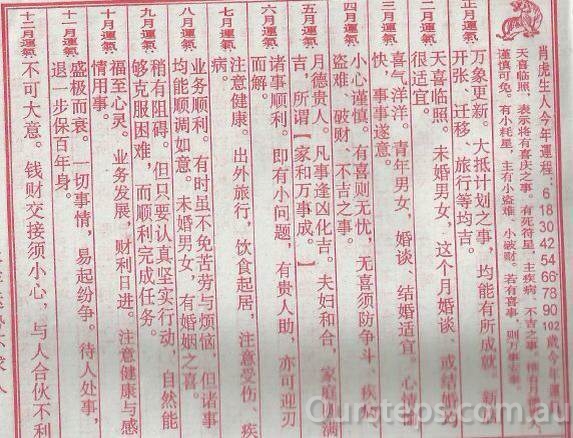 肖虎生人今年运程：6 18 30 42 54 66 78 90 102岁今年运
天喜临照，表示将有喜庆之事。有死符星，主疾病、不吉之事，惟有
谨慎可免。有小耗星，主有小盗难、小破财。若有喜事，则万事
正月運氣
万象更新。大抵计划之事，均能有所成就，新
开张、迁移、旅行等均吉。
二月運氣
天喜临照。未婚男女，这个月婚谈、或结婚均
很适宜。
三月運氣
喜气洋洋。青年男女，婚谈、结婚适宜。心情
快，事事遂意。
四月運氣
小心谨慎。有喜则无忧，无喜须防争斗、疾病
盗难、破财、不吉之事。
五月運氣
月德贵人。凡事逢凶化吉。夫妇和合，家庭圆满
吉，所谓【家和万事成。】
六月運氣
诸事顺利。即有小问题，有贵人助，亦可迎刃
而解。
七月運氣
注意健康。出外旅行，饮食起居，注意受伤、疾
病。
八月運氣
业务顺利。有时虽不免苦劳与烦恼，但诸事
均能顺调如意。未婚男女，有婚姻之喜。
九月運氣
稍有阻碍。但只要认真坚实行动，自然能
够克服困难，而顺利完成任务。
十月運氣
福至心灵。业务发展，财利日进。注意健康与感
情用事。
十一月運氣
盛极而衰。一切事情，易起纷争。待人处事，
退一步保百年身。
十二月運氣
不可大意。钱财交接须小心，与人合伙不利
Oursteps.com.au